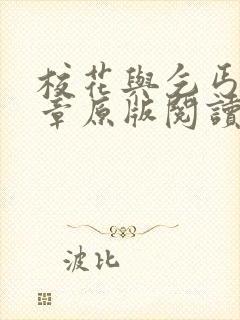 校花與乞丐
章原版閱讀
波比